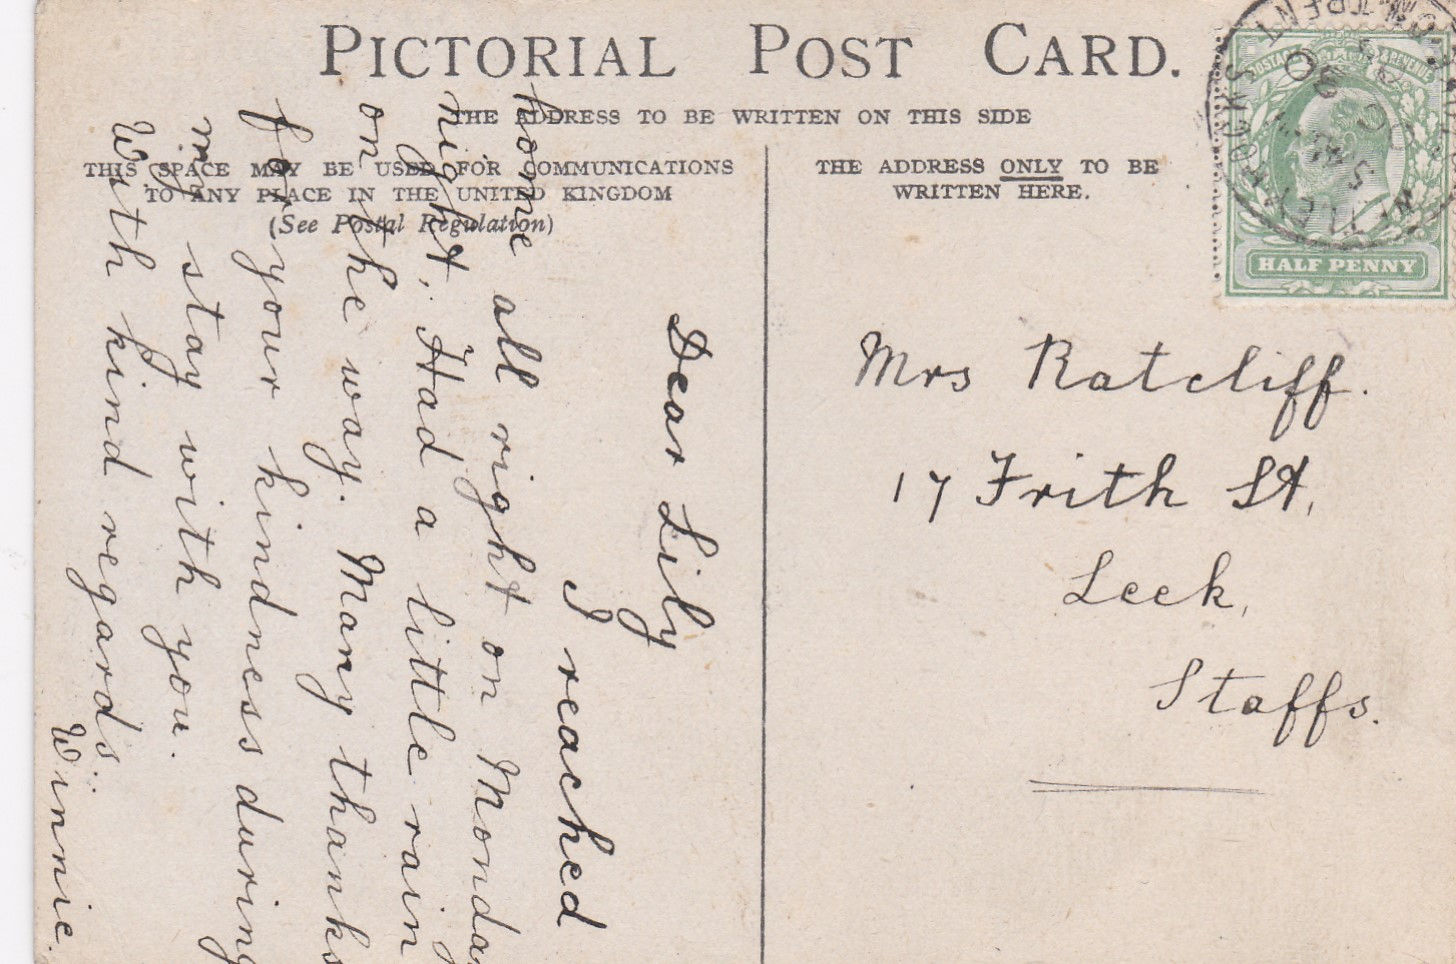 PICTORIAL POST CARD.
THE ADDRESS TO BE WRITTEN ON THIS SIDE
THIS SPACE MAY BE USED FOR COMMUNICATIONS
TO ANY PLACE IN THE UNITED KINGDOM
(See Postal Regulation)
THE ADDRESS ONLY TO BE
WRITTEN HERE.
HALF PENNY
Dear Lily
I reached
home all right on Monday
night. Had a little rain
on the way. Many thanks
for your kindness during
my stay with you.
With kind regards.
Winnie.
Mrs Ratcliff.
17 Frith St,
Leek,
Staffs.